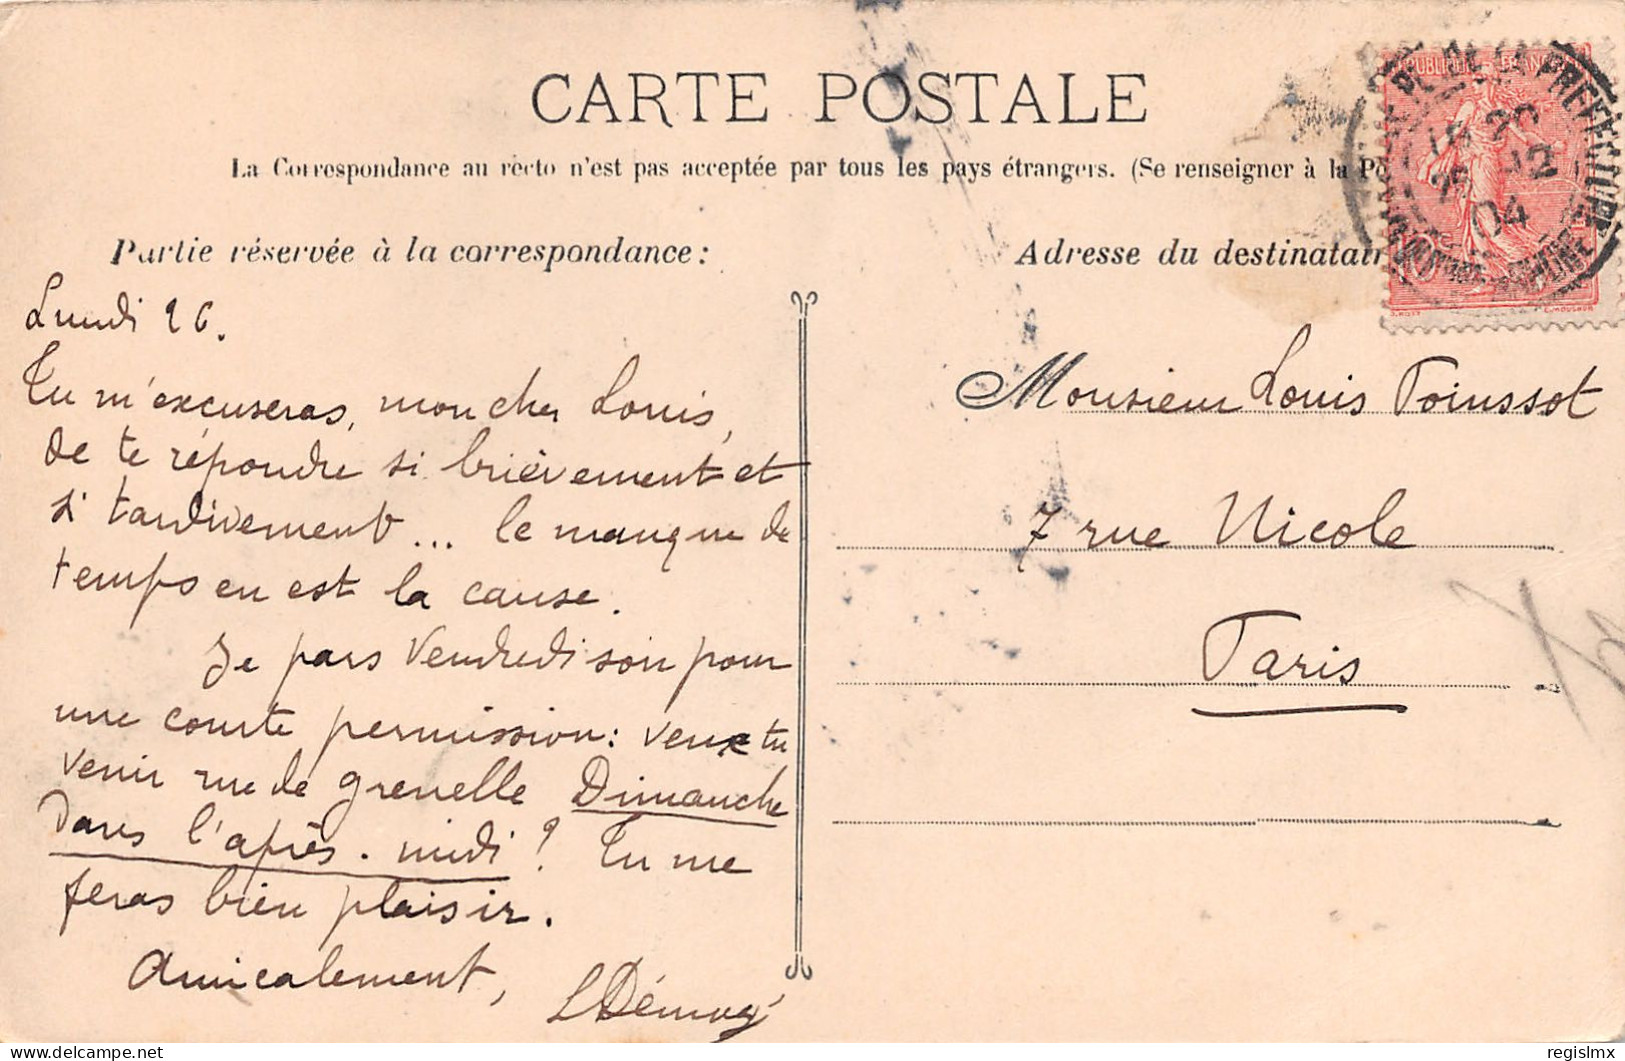 CARTE POSTALE
La Correspondance au recto n'est pas acceptée par tous les pays étrangers. (Se renseigner à la Po
Partie réservée à la correspondance :
Lundi 26.
Tu m'excuseras, mon cher Louis,
de te répondre si brièvement et
si tardivement... le manque de
temps en est la cause.
Je pars Vendredi soir pour
une courte permission : veux tu
venir rue de grenelle Dimanche
dans l'après-midi ? Tu me
feras bien plaisir.
Amicalement,
Adresse du destinatair
Monsieur Louis Poinssot
7 rue Nicole
Paris
DE LA PREFECTURE
12
04
regislmx